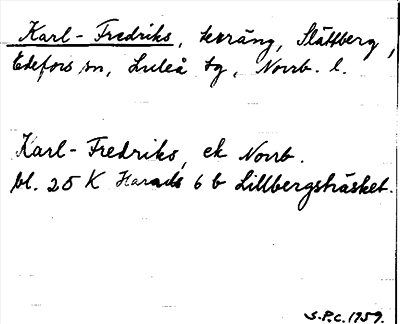 Karl-Fredriks, terräng, Slättberg,
Edefors sn, Luleå tg, Norrb. l.
Karl-Fredriks, ek Norrb.
bl. 25 K Harads 6 b Lillbergsträsket.
S.P.C. 1959.